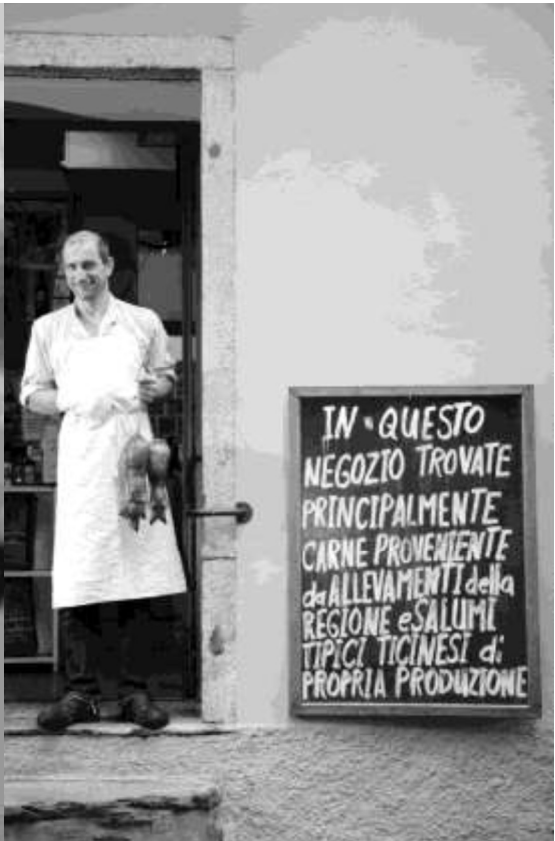 IN • QUESTO
NEGOZIO TROVATE
PRINCIPALMENTE
CARNE PROVENIENTE
da ALLEVAMENTI della
REGIONE e SALUMI
TIPICI TICINESI di
PROPRIA PRODUZIONE